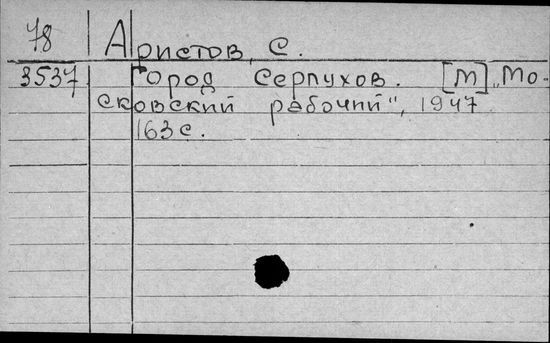 78 Аристов, С.
3537 Город Серпухов. [М] „Мо-
сковский рабочий", 1947
163 с.